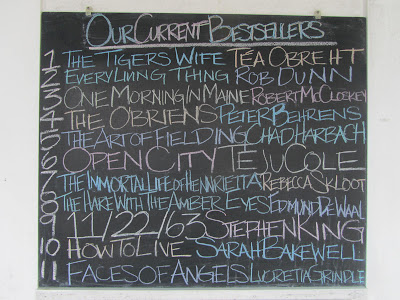 OUR CURRENT BESTSELLERS
1 THE TIGERS WIFE TÉA OBREHT
2 EVERY LIVING THING ROB DUNN
3 ONE MORNING IN MAINE ROBERT MCCLOSKEY
4 THE O'BRIENS PETER BEHRENS
5 THE ART OF FIELDING CHAD HARBACH
6 OPEN CITY TEJU COLE
7 THE IMMORTAL LIFE OF HENNRIETTA REBECCA SKLOOT
8 THE HARE WITH THE AMBER EYES EDMUND DE WAAL
9 11/22/63 STEPHEN KING
10 HOW TO LIVE SARAH BAKEWELL
11 FACES OF ANGELS LUCRETIA GRINDLE